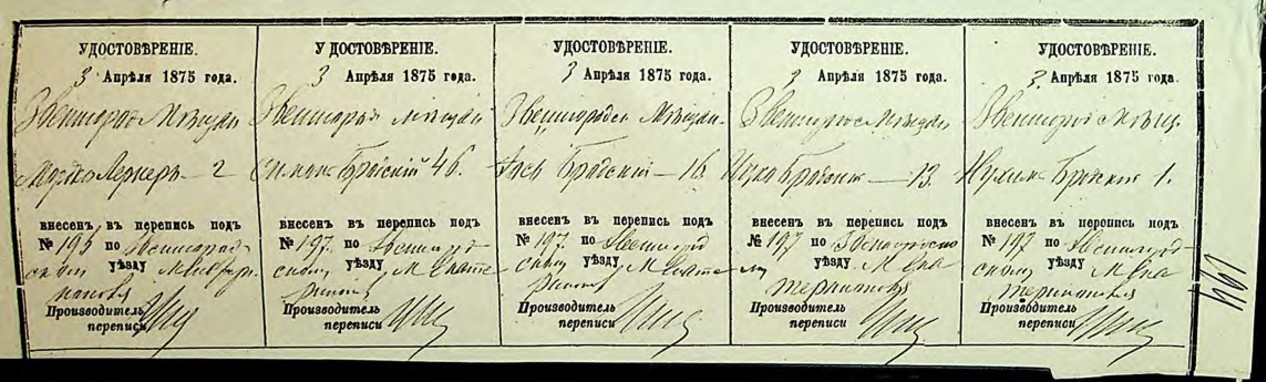 УДОСТОВѢРЕНІЕ.
3 Апрѣля 1875 года.
Звенигород Мѣщан
Мордко Лернеръ — 2
внесенъ въ перепись подъ
№ 195 по Звенигород-
скому уѣзду М. Екатери-
нополь
Производитель
переписи
У ДОСТОВѢРЕНІЕ.
3 Апрѣля 1875 года.
Звенигород мѣщан
Бродскій 46.
внесенъ въ перепись подъ
№ 197. по Звенигород
скому уѣзду М Екате
Производитель
переписи
УДОСТОВѢРЕНІЕ.
3 Апрѣля 1875 года.
Звенигородск Мѣщан.
Бродскій — 16
внесенъ въ перепись подъ
№ 197. по Звенигород
скому уѣзду М Екате
Производитель
переписи
УДОСТОВѢРЕНІЕ.
3 Апрѣля 1875 года.
Звенигородс Мѣщан
Ицко Бродск — 13.
внесенъ въ перепись подъ
№ 197 по Звенигородско
му уѣзду М Ека
теринополя
Производитель
переписи
УДОСТОВѢРЕНІЕ.
3 Апрѣля 1875 года.
Звенигород мѣщ.
Нухимъ Бродскій 1.
внесенъ въ перепись подъ
№ 197 по Звенигород-
скому уѣзду М Ека
теринополя
Производитель
переписи